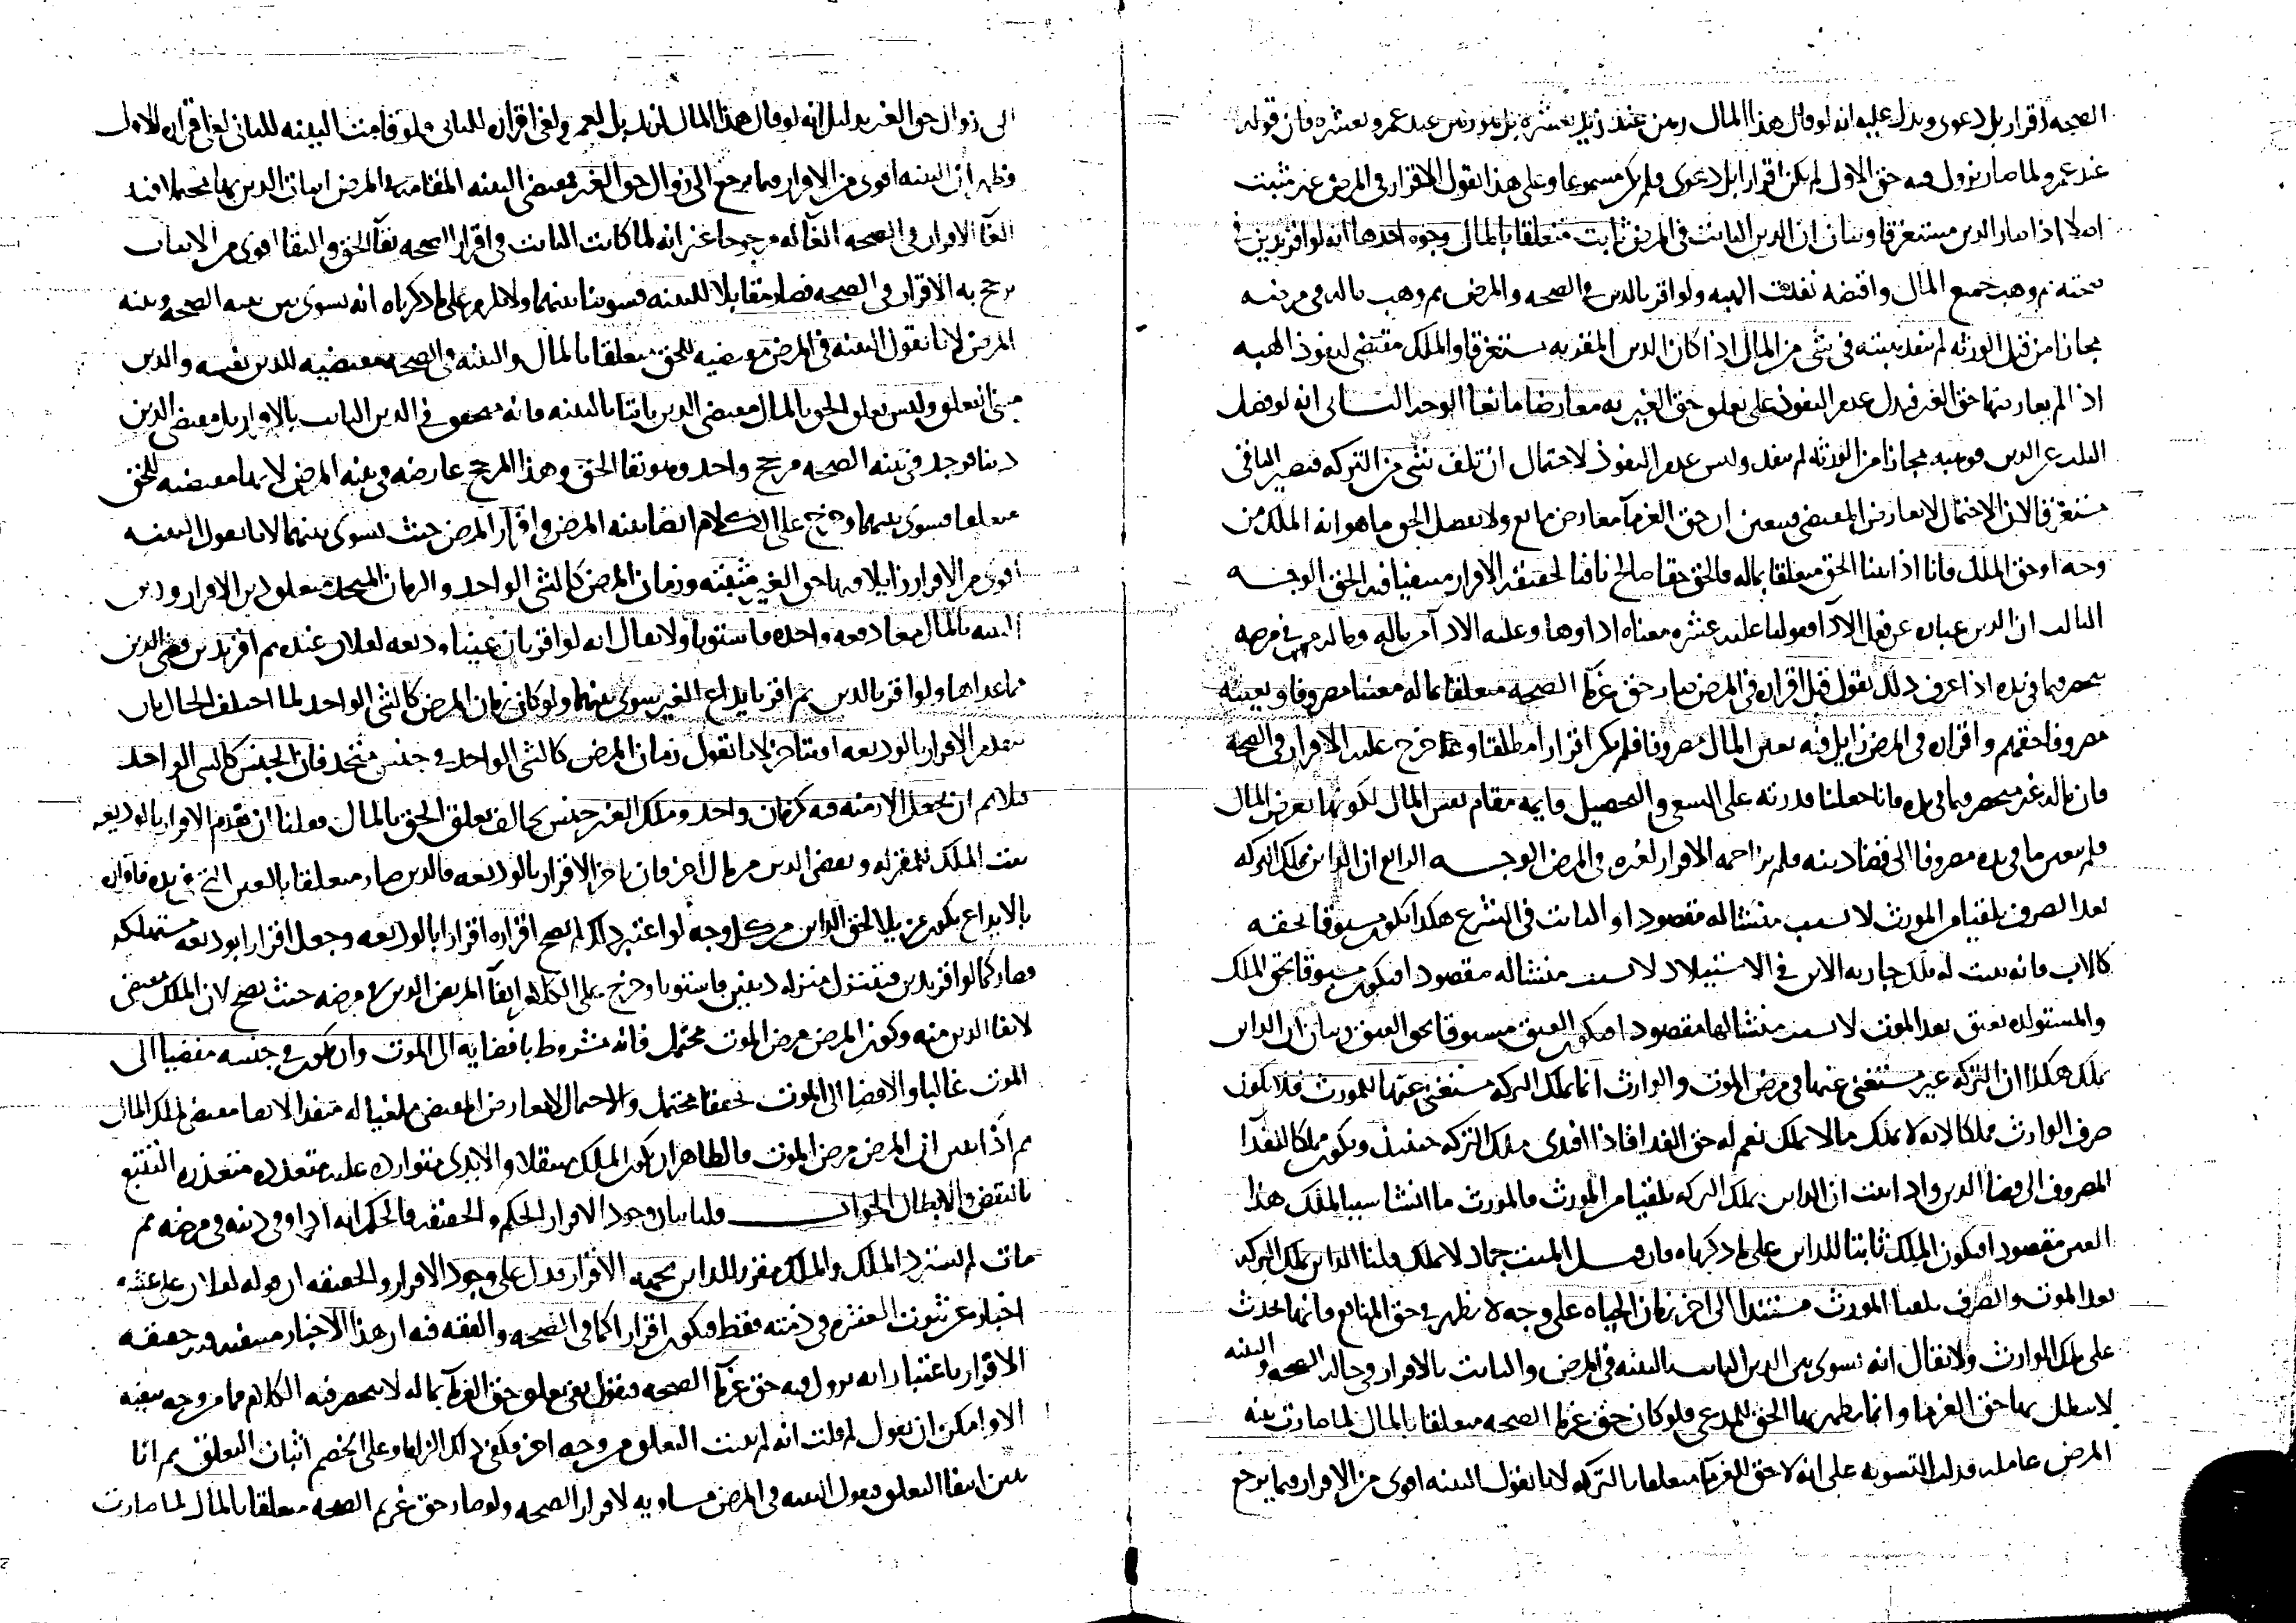 الصحه اقرار بل دعوى ويدل عليه انه لو قال هذا المال رهن عند زيد بعشره بل هو رهن عند عمرو بعشره فان قوله
عند عمرو لما صار يزول فيه حق الاول لم يكن اقرارا بل دعوى فلم يكن مسموعا وعلى هذا نقول الاقرار في المرض غير مثبت
اصلا اذا صار الدين مستغرقا وبيان ان الدين الثابت في المرض ثابت متعلقا بالمال وجوه احدها انه لو اقر بدين في
صحته ثم وهب جميع المال واقبضه نفذت الهبه ولو اقر بالدين في الصحه والمرض ثم وهب ماله في مرضه
مجازا من قبل الورثه لم ينفذ هبته في شي من المال اذا كان الدين المقر به مستغرقا والملك مقتضي لنفوذ الهبه
اذا لم يعارضها حق الغير فيدل عدم النفوذ على تعلق حق الغير به معارضا مانعا الوجه الثاني انه لو فضل
الثلث عن الدين فوهبه مجازا من الورثه لم ينفذ وليس عدم النفوذ لاحتمال ان تلف شي من التركه فيصير الباقي
مستغرقا لان الاحتمال لا يعارض المقتضي فتعين ان حق الغرما معارض مانع ولا نفصل الحق ما هو انه الملك من
وجه او حق الملك فانا اذا اثبتنا الحق متعلقا بماله فالحق حقا صالح نافيا لحقيقه الاقرار منتفيا فيه الحق الوجه
الثالث ان الدين عباره عن فعل الادا فقولنا عليه عشره معناه اداوها وعليه الادا من ماله وماله في مرضه
ينحصر فيما في يده اذا عرف ذلك نقول قبل اقراره في المرض صار حق غرما الصحه متعلقا بماله معينا مصروفا وبعينه
مصروفا حقهم واقراره في المرض زايل فيه تعين المال مصروفا فلم يكن اقرارا مطلقا وعلى هذا خرج عليه الاقرار في الصحه
فان ماله غير منحصر فيما في يده فانا جعلنا قدرته على السعي والتحصيل قايمه مقام نفس المال لكونها بعرض المال
فلم يتعين ما في يده مصروفا الى قضا دينه فلم يزاحمه الاقرار لغيره في المرض الوجه الرابع ان الداين يملك التركه
بعد الصرف تلقيا من المورث لا بسبب منشا له مقصودا والثابت في الشرع هكذا يكون مسبوقا بحقه
كالاب فانه يثبت له ملك جاريه الابن في الاستيلاد لا بسبب منشا له مقصودا فيكون مسبوقا بحق الملك
والمستولده تعتق بعد الموت لا بسبب منشا لها مقصودا فيكون العتق مسبوقا بحق العتق وبيان ان الداين
يملك هكذا ان التركه غير مستغنى عنها في مرض الموت والوارث انما يملك التركه مستغنى عنها للمورث فلا يكون
صرف الوارث مملكا لانه لا يملك ما لا يملك نعم له حق الفدا فاذا افتدى ملك التركه حينئذ ويكون مملكا للفدا
المصروف الى قضا الدين واذا ثبت ان الداين يملك التركه تلقيا من المورث فالمورث ما انشا سببا لملك هذا
العين مقصودا فيكون الملك ثابتا للداين على ما ذكرناه فان قيل الميت جماد لا يملك قلنا الداين يملك التركه
بعد الموت والصرف تلقيا المورث مستندا الى اخر زمان الحياه على وجه لا يظهر في حق المنافع فانها تحدث
على ملك الوارث ولا يقال انه تسوى بين الدين الثابت بالبينه في المرض والثابت بالاقرار في حاله الصحه والبينه
لا يبطل بها حق الغرما وانما يظهر بها الحق للمدعي فلو كان حق غرما الصحه متعلقا بالمال لما صارت بينه
المرض عامله فدلت التسويه على انه لا حق للغرما متعلقا بالتركه لانا نقول البينه اقوى من الاقرار فيما يرجع
الى زوال حق الغير بدليل انه لو قال هذا المال لزيد بل لعمرو لغى اقراره للثاني ولو قامت البينه للثاني لغى اقراره للاول
وظهر ان البينه اقوى من الاقرار فيما يرجع الى زوال حق الغير فمقتضى البينه المقامه في المرض اثبات الدين بها محتملا فيه
الغا الاقرار في الصحه الغا له مرجوحا غير انه لما كانت الثابت في اقرار الصحه بقا الحق والبقا اقوى من الاثبات
ترجح به الاقرار في الصحه فصار مقابلا للبينه فسوينا بينهما ولا يلزم على ما ذكرناه انه يسوى بين بينه الصحه وبينه
المرض لانا نقول البينه في المرض مقتضيه للحق متعلقا بالمال والبينه في الصحه مقتضيه للدين نفسه والدين
مبنى التعلق وليس تعلق الحق بالمال مقتضى الدين ثابتا بالبينه فانه متحقق في الدين الثابت بالاقرار بل مقتضى الدين
دينا فوجد في بينه الصحه مرجح واحد وهو بقا الحق وهذا المرجح عارضه في بينه المرض لانها مقتضيه للحق
متعلقا فسوى بينهما وخرج على الكلام ايضا بينه المرض واقرار المرض حيث يسوى بينهما لانا نقول البينه
اقوى من الاقرار زايلا فيها حق الغير مثبته وزمان المرض كالشي الواحد والزمان المتحد متعلق دين الاقرار ودين
البينه بالمال معا دفعه واحده فاستويا ولا يقال انه لو اقر بان عينا وديعه لفلان عنده ثم اقر بدين قضي الدين
مما عداها ولو اقر بالدين ثم اقر بايداع الغير سوى بينهما ولو كان زمان المرض كالشي الواحد لما اختلف الحال بان
يتقدم الاقرار بالوديعه او يتاخر لانا نقول زمان المرض كالشي الواحد في جنس متحد فان الجنس كالشي الواحد
فلايم ان نجعل الازمنه فيه كزمان واحد وملك الغير جنس يخالف تعلق الحق بالمال فقلنا ان تقدم الاقرار بالوديعه
يثبت الملك للمقر له ونقضي الدين من مال اخر فان تاخر الاقرار بالوديعه فالدين صار متعلقا بالعين التي في يده فاقراره
بالايداع يكون مزيلا لحق الداين من كل وجه لو اعتبر ذلك لم يصح اقراره اقرارا بالوديعه وجعل اقرارا بوديعه مستهلكه
فصار كما لو اقر بدين فيتنزل منزله دينين فاستويا وخرج على الكلام ايفا المريض الدين في مرضه حيث يصح لان الملك مقتضي
لايفا الدين منه وكون المرض مرض الموت محتمل فانه مشروط بافضايه الى الموت وان يكون في جنسه مفضيا الى
الموت غالبا والافضا الى الموت تحققا محتمل والاحتمال لا يعارض المقتضي ملغيا له فينفذ الايفا مقتضي لملك المال
ثم اذا تبين ان المرض مرض الموت فالظاهر ان يكون الملك منتقلا والايدي متوارده عليه متعدده متعذره التتبع
بالنقض والابطال الجواب قلنا بيان وجود الاقرار الحكم والحقيقه فالحكم انه اذا اوفى دينه في مرضه ثم
مات لم يسترد الملك والملك مقرر للداين بجهه الاقرار فدل على وجود الاقرار والحقيقه ان قوله لفلان علي عشره
اخبار عن ثبوت العشره في ذمته فقط فيكون اقرارا كما في الصحه والفقه فيه ان هذا الاخبار حقيقه
الاقرار باعتبار انه يزول فيه حق غرما الصحه فنقول نعني تعلق حق الغرما بماله لا ينحصر فيه الكلام فما من وجه بعينه
الا وامكن ان نقول لم قلت انه لم يثبت التعلق من وجه اخر فيكفي ذلك الزاما وعلى الخصم اثبات التعلق ثم انا
نبين انتفا التعلق فنقول البينه في المرض مساويه لاقرار الصحه ولو صار حق غريم الصحه متعلقا بالمال لما صارت